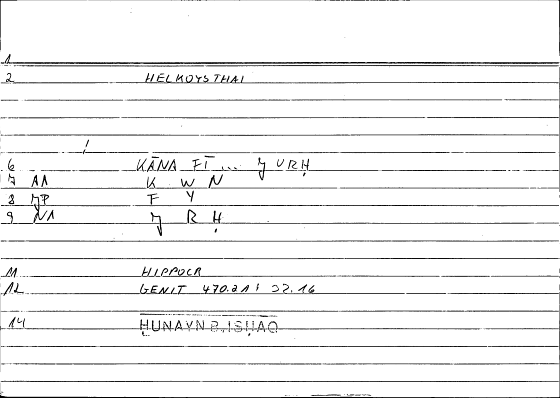 1
2 HELKOYSTHAI
!
6 KĀNA FĪ ... J URḤ
7 AA K W N
8 JP F Y
9 NA J R Ḥ
11 HIPPOCR
12 GENIT 470.21; 32.16
14 ḤUNAYN B.ISḤAQ